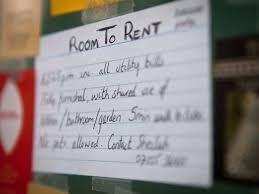 ROOM TO RENT
p.m inc. all utility bills
Fully furnished, with shared use of
/bathroom/garden. 5min walk
No pets allowed. Contact Sheilah